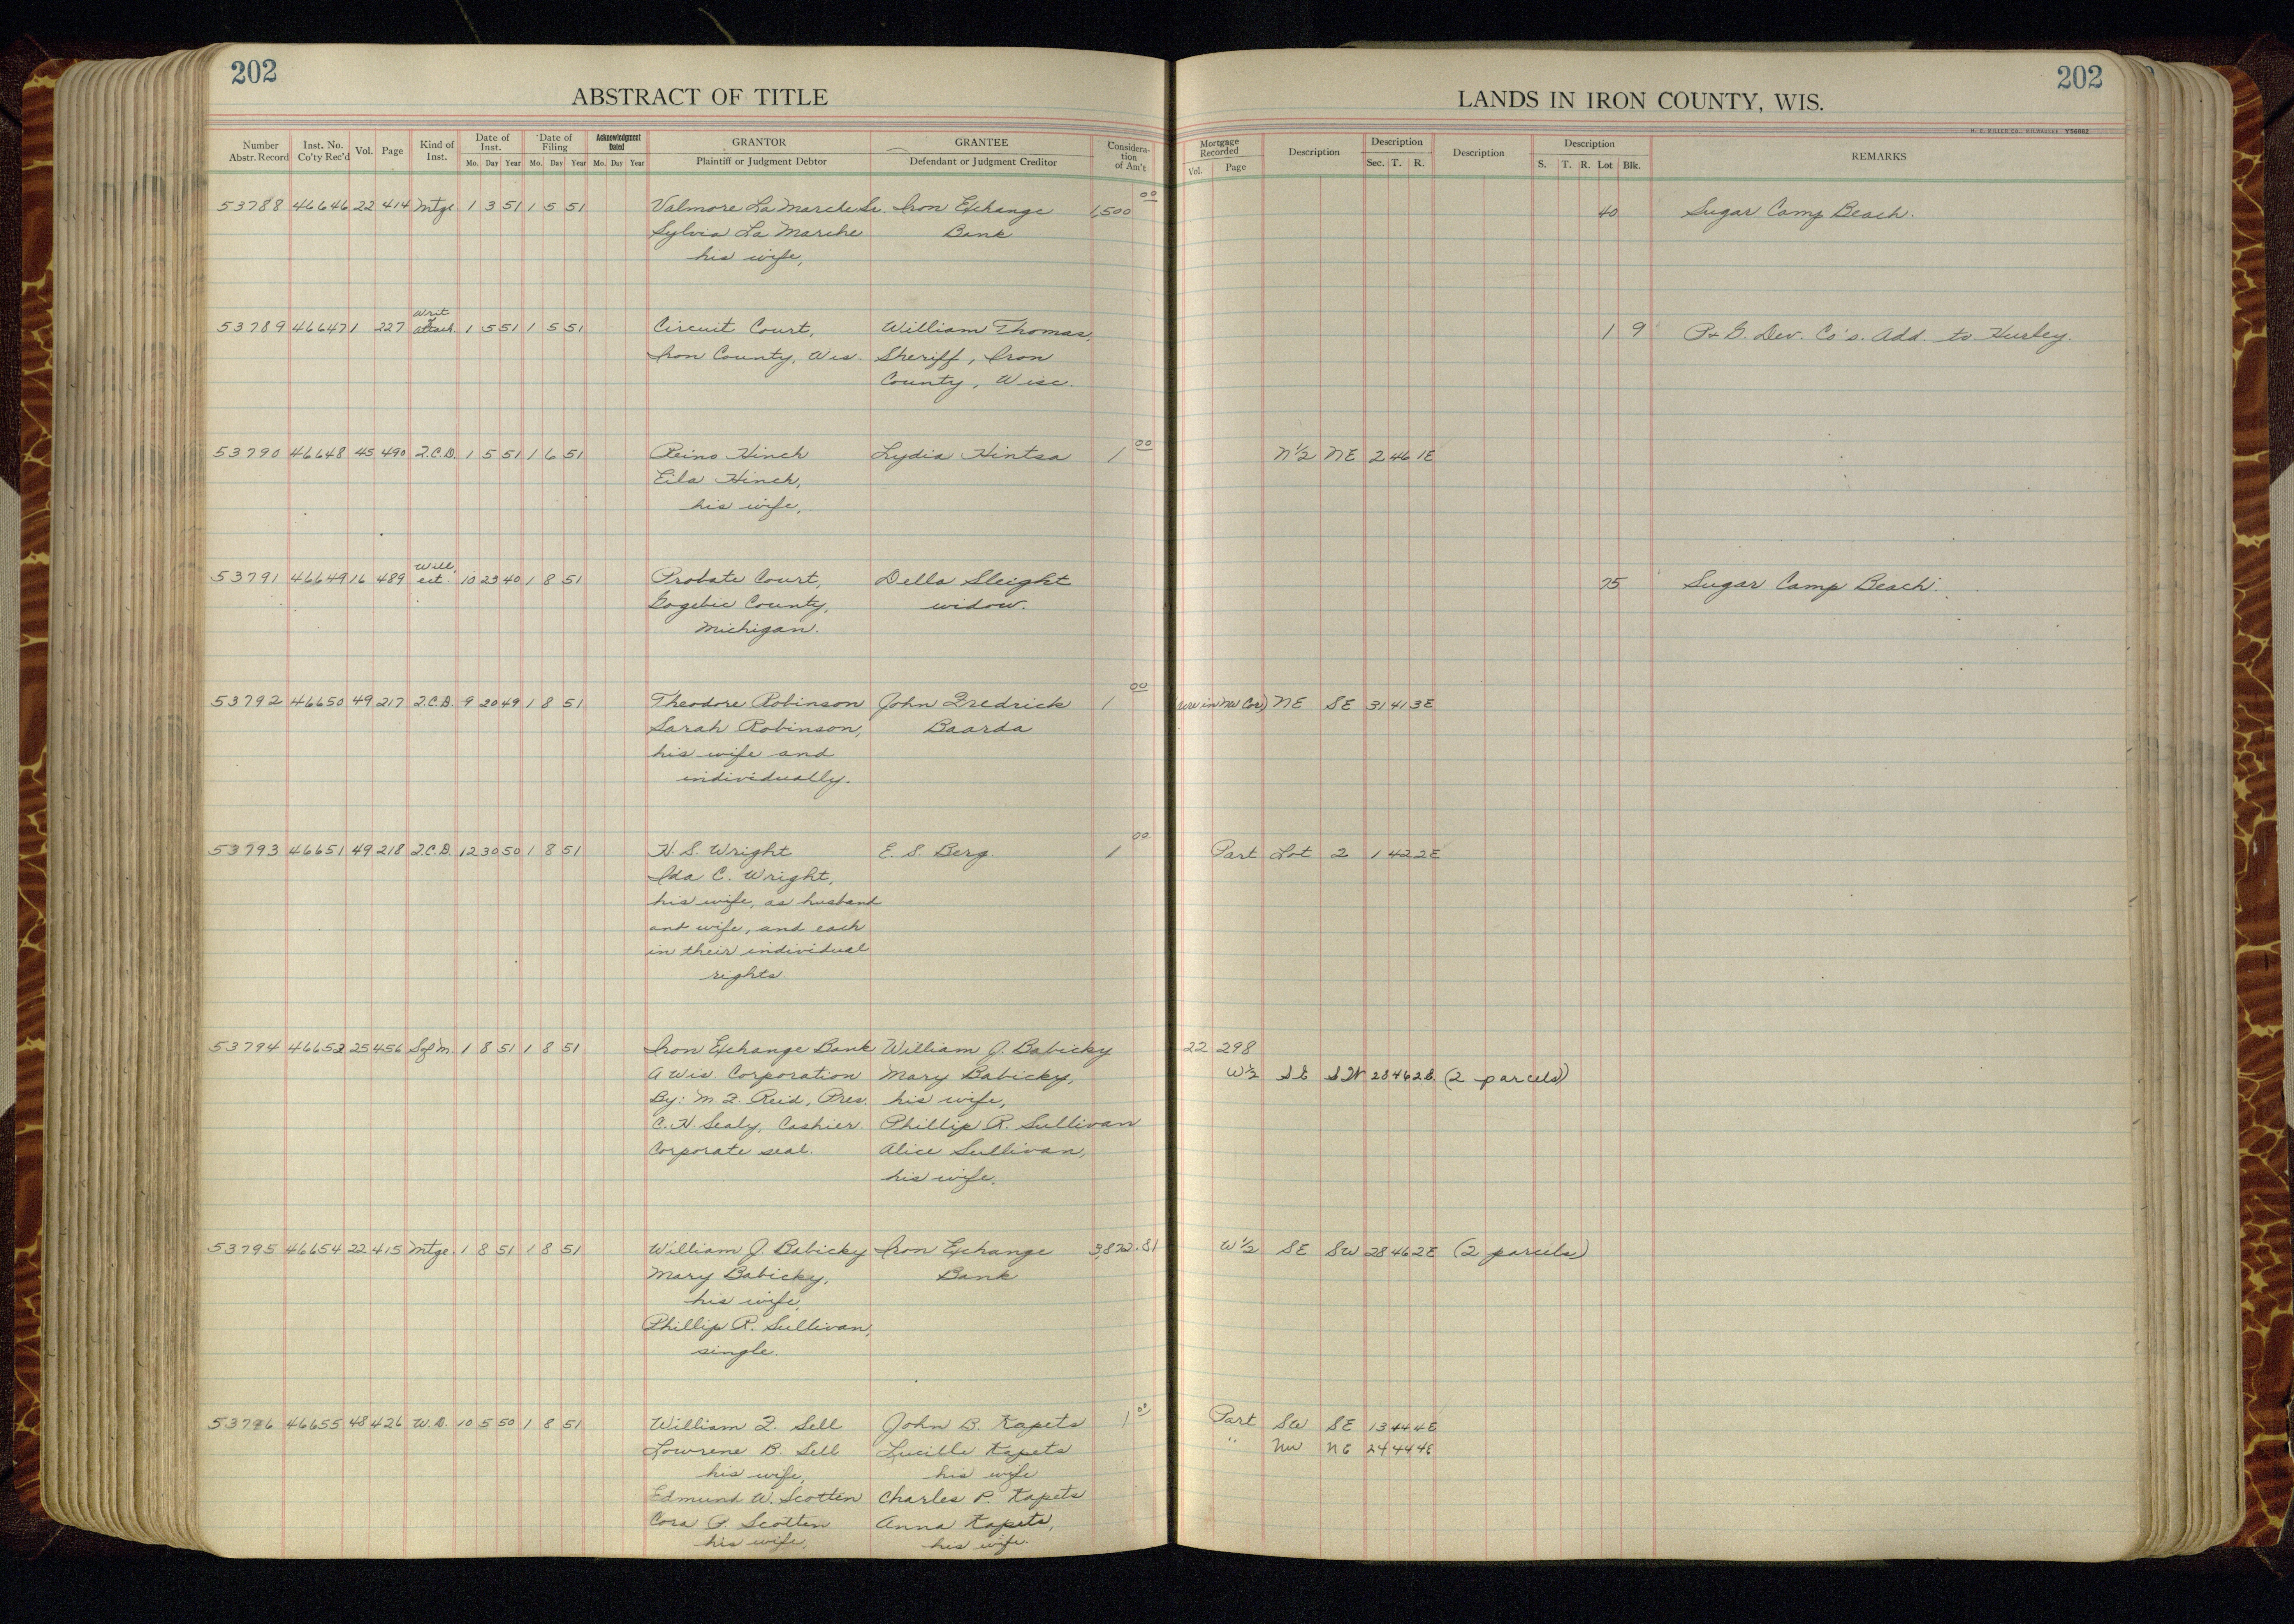 202
ABSTRACT OF TITLE
Number Abstr. Record
Inst. No. Co'ty Rec'd
Vol.
Page
Kind of Inst.
Date of Inst.
Mo. Day Year
Date of Filing
Mo. Day Year
Acknowledgment Dated
Mo. Day Year
GRANTOR
Plaintiff or Judgment Debtor
GRANTEE
Defendant or Judgment Creditor
Consideration of Am't
202
LANDS IN IRON COUNTY, WIS.
H. C. MILLER CO., MILWAUKEE V56682
Mortgage Recorded
Vol. Page
Description
Description
Sec. T. R.
Description
Description
S. T. R. Lot Blk.
REMARKS
53788 46646 22 414 Mtge 1 3 51 1 5 51 Valmore La Marche Sr. Iron Exchange 1,500 00 40 Sugar Camp Beach.
Sylvia La Marche Bank
his wife,
Writ
53789 46647 1 227 attach. 1 5 51 1 5 51 Circuit Court, William Thomas, 1 9 P+G. Dev. Co's. Add. to Hurley.
Iron County, Wis. Sheriff, Iron
County, Wisc.
53790 46648 45 490 Q.C.D. 1 5 51 1 6 51 Reino Hinch Lydia Hintsa 1 00 N½ NE 2 46 1E
Eila Hinch,
his wife,
Will,
53791 46649 16 489 est. 10 23 40 1 8 51 Probate Court, Della Sleight 75 Sugar Camp Beach.
Gogebic County, widow.
Michigan.
53792 46650 49 217 Q.C.D. 9 20 49 1 8 51 Theodore Robinson John Fredrick 1 00 NE SE 31 41 3E
Sarah Robinson, Baarda
his wife and
individually.
53793 46651 49 218 Q.C.D. 12 30 50 1 8 51 H. S. Wright E. S. Berg. 1 00 Part Lot 2 1 42 2E
Ida C. Wright,
his wife, as husband
and wife, and each
in their individual
rights.
53794 46652 25 456 Sof M. 1 8 51 1 8 51 Iron Exchange Bank William J. Babicky 22 298
A Wis. Corporation Mary Babicky, W½ SE SW 28 46 2E (2 parcels)
By: M. F. Reid, Pres. his wife,
C. H. Sealy, Cashier. Phillip R. Sullivan
Corporate seal. Alice Sullivan,
his wife.
53795 46654 22 415 Mtge. 1 8 51 1 8 51 William J. Babicky Iron Exchange 3,822.81 W½ SE SW 28 46 2E (2 parcels)
Mary Babicky, Bank
his wife,
Phillip R. Sullivan,
single.
53796 46655 48 426 W.D. 10 5 50 1 8 51 William F. Sell John B. Kapets 1 00 Part SW SE 13 44 4E
Lowrene B. Sell Lucille Kapets " NW NE 24 44 4E
his wife, his wife
Edmund W. Scotten Charles P. Kapets
Cora P Scotten Anna Kapets,
his wife, his wife.